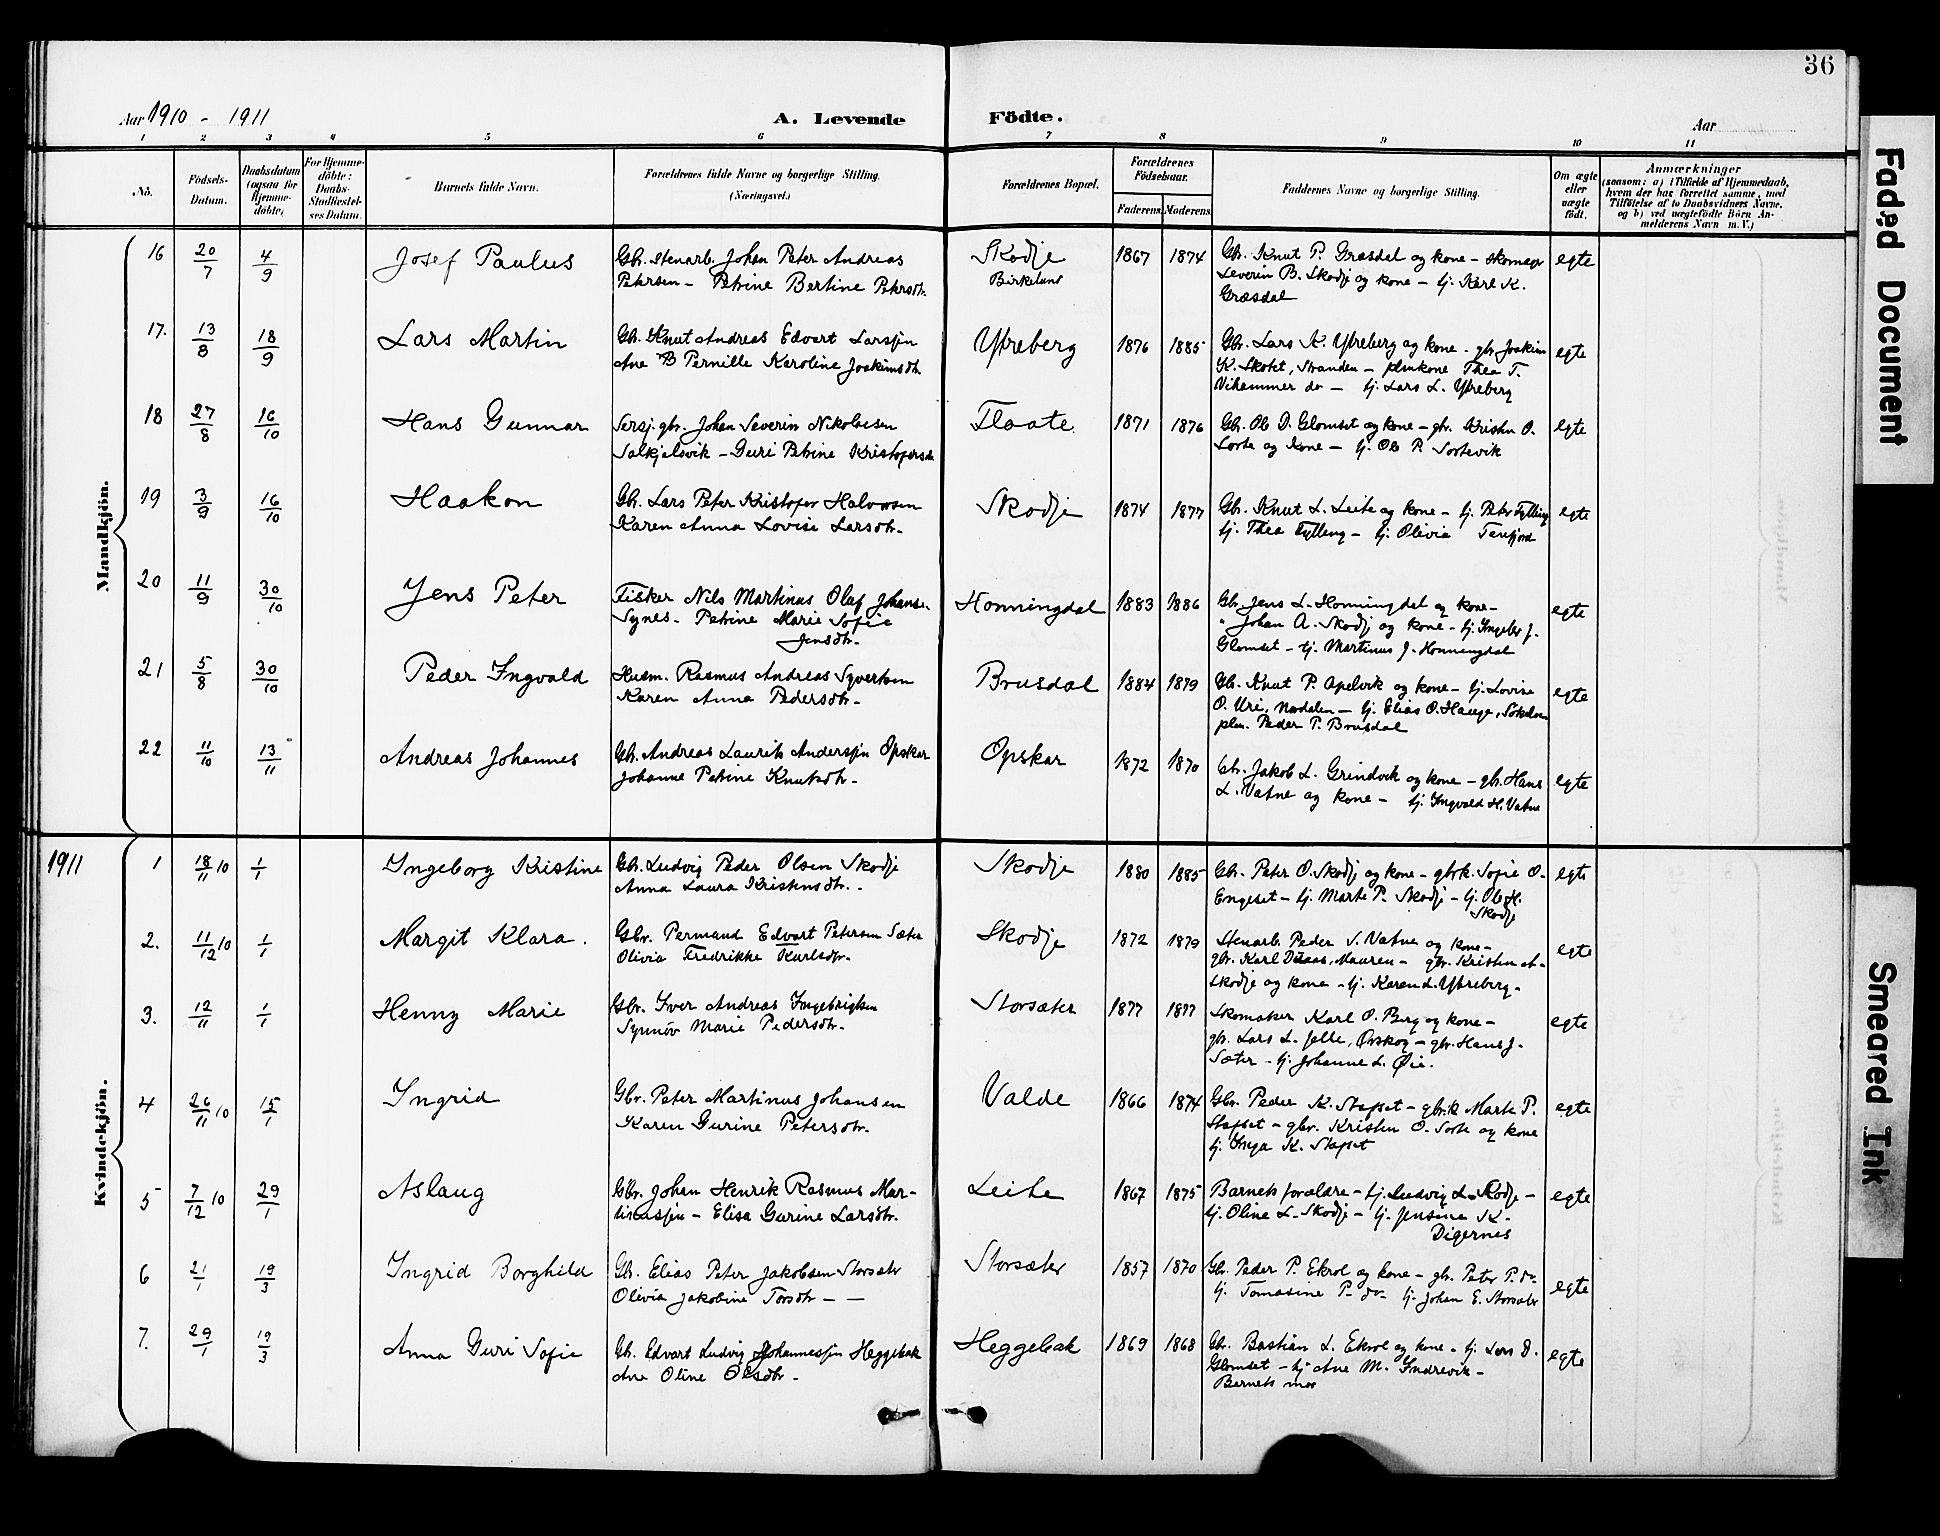 36
Aar 1910 - 1911
A. Levende Födte.
Aar
1 2 3 4 5 6 7 8 9 10 11
No.
Födsels-Datum.
Daabsdatum (ogsaa for Hjemme-döbte)
For Hjemme-döbte: Daabs-Stadfæstel-ses Datum.
Barnets fulde Navn.
Forældrenes fulde Navne og borgerlige Stilling. (Næringsvei.)
Forældrenes Bopæl.
Forældrenes Födselsaar.
Faderens Moderens
Faddernes Navne og borgerlige Stilling.
Om ægte eller uægte födt.
Anmærkninger
(saasom: a) i Tilfælde af Hjemmedaab, hvem der har forrettet samme, med Tilföielse af to Daabsvidners Navne, og b) ved uægtefödte Börn An-melderens Navn m.V.)
Mandkjön.
16 20/7 4/9 Josef Paulus
Gbr. stenarb. Johan Peter Andreas
Petersen - Petrine Bertine Petersdtr.
Skodje
Birkelund
1867 1874
Gbr. Knut P. Græsdal og kone - skomager
Severin B. Skodje og kone - tj. Karl K.
Græsdal
egte
17. 13/8 18/9 Lars Martin
Gbr. Knut Andreas Edvart Larssen
Ane B Pernille Karoline Joakimsdtr.
Ytreberg
1876 1885
Gbr. Lars K. Ytreberg og kone - gbr Joakim
K. Skotet, Stranden - plmkone Thea T.
Vihammer do - tj. Lars L. Ytreberg
egte
18 27/8 16/10 Hans Gunnar
Sersj. gbr. Johan Severin Nikolaisen
Solkjelsvik - Guri Petrine Kristofersdtr
Flaate.
1871 1876
Gbr. Ole D. Glomset og kone - gbr. Kristen O.
Sorte og kone - tj. Ole P. Sortevik
egte
19 3/9 16/10 Haakon
Gbr. Lars Peter Kristofer Halvorsen
Karen Anna Lovise Larsdtr.
Skodje
1874 1877
Gbr. Knut L. Leite og kone - tj. Peter Fylling
tj. Thea Fylling - tj. Olivia Tenfjord
egte
20 11/9 30/10 Jens Peter
Fisker Nils Martinus Olaf Johans.
Synes - Petrine Marie Sofie
Jensdtr.
Honningdal
1883 1886
Gbr. Jens L. Honningdal og kone -
" Johan A. Skodje og kone - tj. Ingebr J.
Glomset - tj. Martinus J. Honningdal
egte
21 5/8 30/10 Peder Ingvald
Husm. Rasmus Andreas Syvertsen
Karen Anna Pedersdtr.
Brusdal
1884 1879
Gbr. Knut P. Apelvik og kone - tj. Lovise
O. Uri, Nordalen - tj. Elias O. Hauge, Sökelven
plm. Peder P. Brusdal
egte
22 11/10 13/11 Andreas Johannes
Gbr. Andreas Laurits Anderssen Opskar
Johanne Petrine Knutsdtr.
Opskar
1872 1870
Gbr. Jakob L. Grindvik og kone - gbr. Hans
L. Vatne og kone - tj. Ingvald H. Vatne
egte
1911
Kvindekjön.
1 18/11 10 1/1 Ingeborg Kristine
Gbr. Ludvig Peder Olsen Skodje
Anna Laura Kristensdtr.
Skodje
1880 1885
Gbr. Peter O. Skodje og kone - gbrk. Sofie O.
Engeset - tj. Marte P. Skodje - tj. Ole H.
Skodje
egte
2. 11/12 10 1/1 Margit Klara.
Gbr. Permand Edvart Petersen Sæter
Olivia Fredrikke Karlsdtr.
Skodje
1872 1879
Stenarb. Peder S. Vatne og kone -
gbr. Karl Maaren - gbr. Kristen A.
Skodje og kone - tj. Karen L. Ytreberg.
egte
3. 12/11 1/1 Henny Marie
Gbr. Iver Andreas Ingebrigtsen
Synnöv Marie Pedersdtr.
Storsæter
1877 1877
Skomaker Karl O. Berg og kone -
gbr. Lars L. Jelle, Örskog - gbr. Hans J.
Sæter - tj. Johanne L. Øie.
egte
4 26/11 10 15/1 Ingrid
Gbr. Peter Martinus Johansen
Karen Gurine Petersdtr.
Valde
1866 1874
Gbr. Peder K. Stafset - gbrk Marte P.
Stafset - gbr. Kristen O. Sorte og kone
tj. Inga K. Stafset
egte
5 7/12 10 29/1 Aslaug
Gbr. Johan Henrik Rasmus Mar-
tinussen - Elisa Gurine Larsdtr.
Leite
1867 1875
Barnets forældre - tj. Ludvig L. Skodje -
tj. Oline L. Skodje - tj. Jensine K.
Digernes
egte
6 21/1 19/3 Ingrid Borghild
Gbr. Elias Peter Jakobsen Storsæter
Olivia Jakobine Torsdtr - -
Storsæter
1857 1870
Gbr. Peder P. Ekrol og kone - gbr. Peter P. do
tj. Tomasine P. do - tj. Johan E. Storsæter
egte
7. 29/1 19/3 Anna Guri Sofie
Gbr. Edvart Ludvig Johannessen Heggebak
Ane Oline Olsdtr.
Heggebak
1869 1868
Gbr. Bastian L. Ekrol og kone - tj. Lars O.
Glomset - tj Ane M. Indrevik -
Barnets mor
egte
Faded Document
Smeared Ink